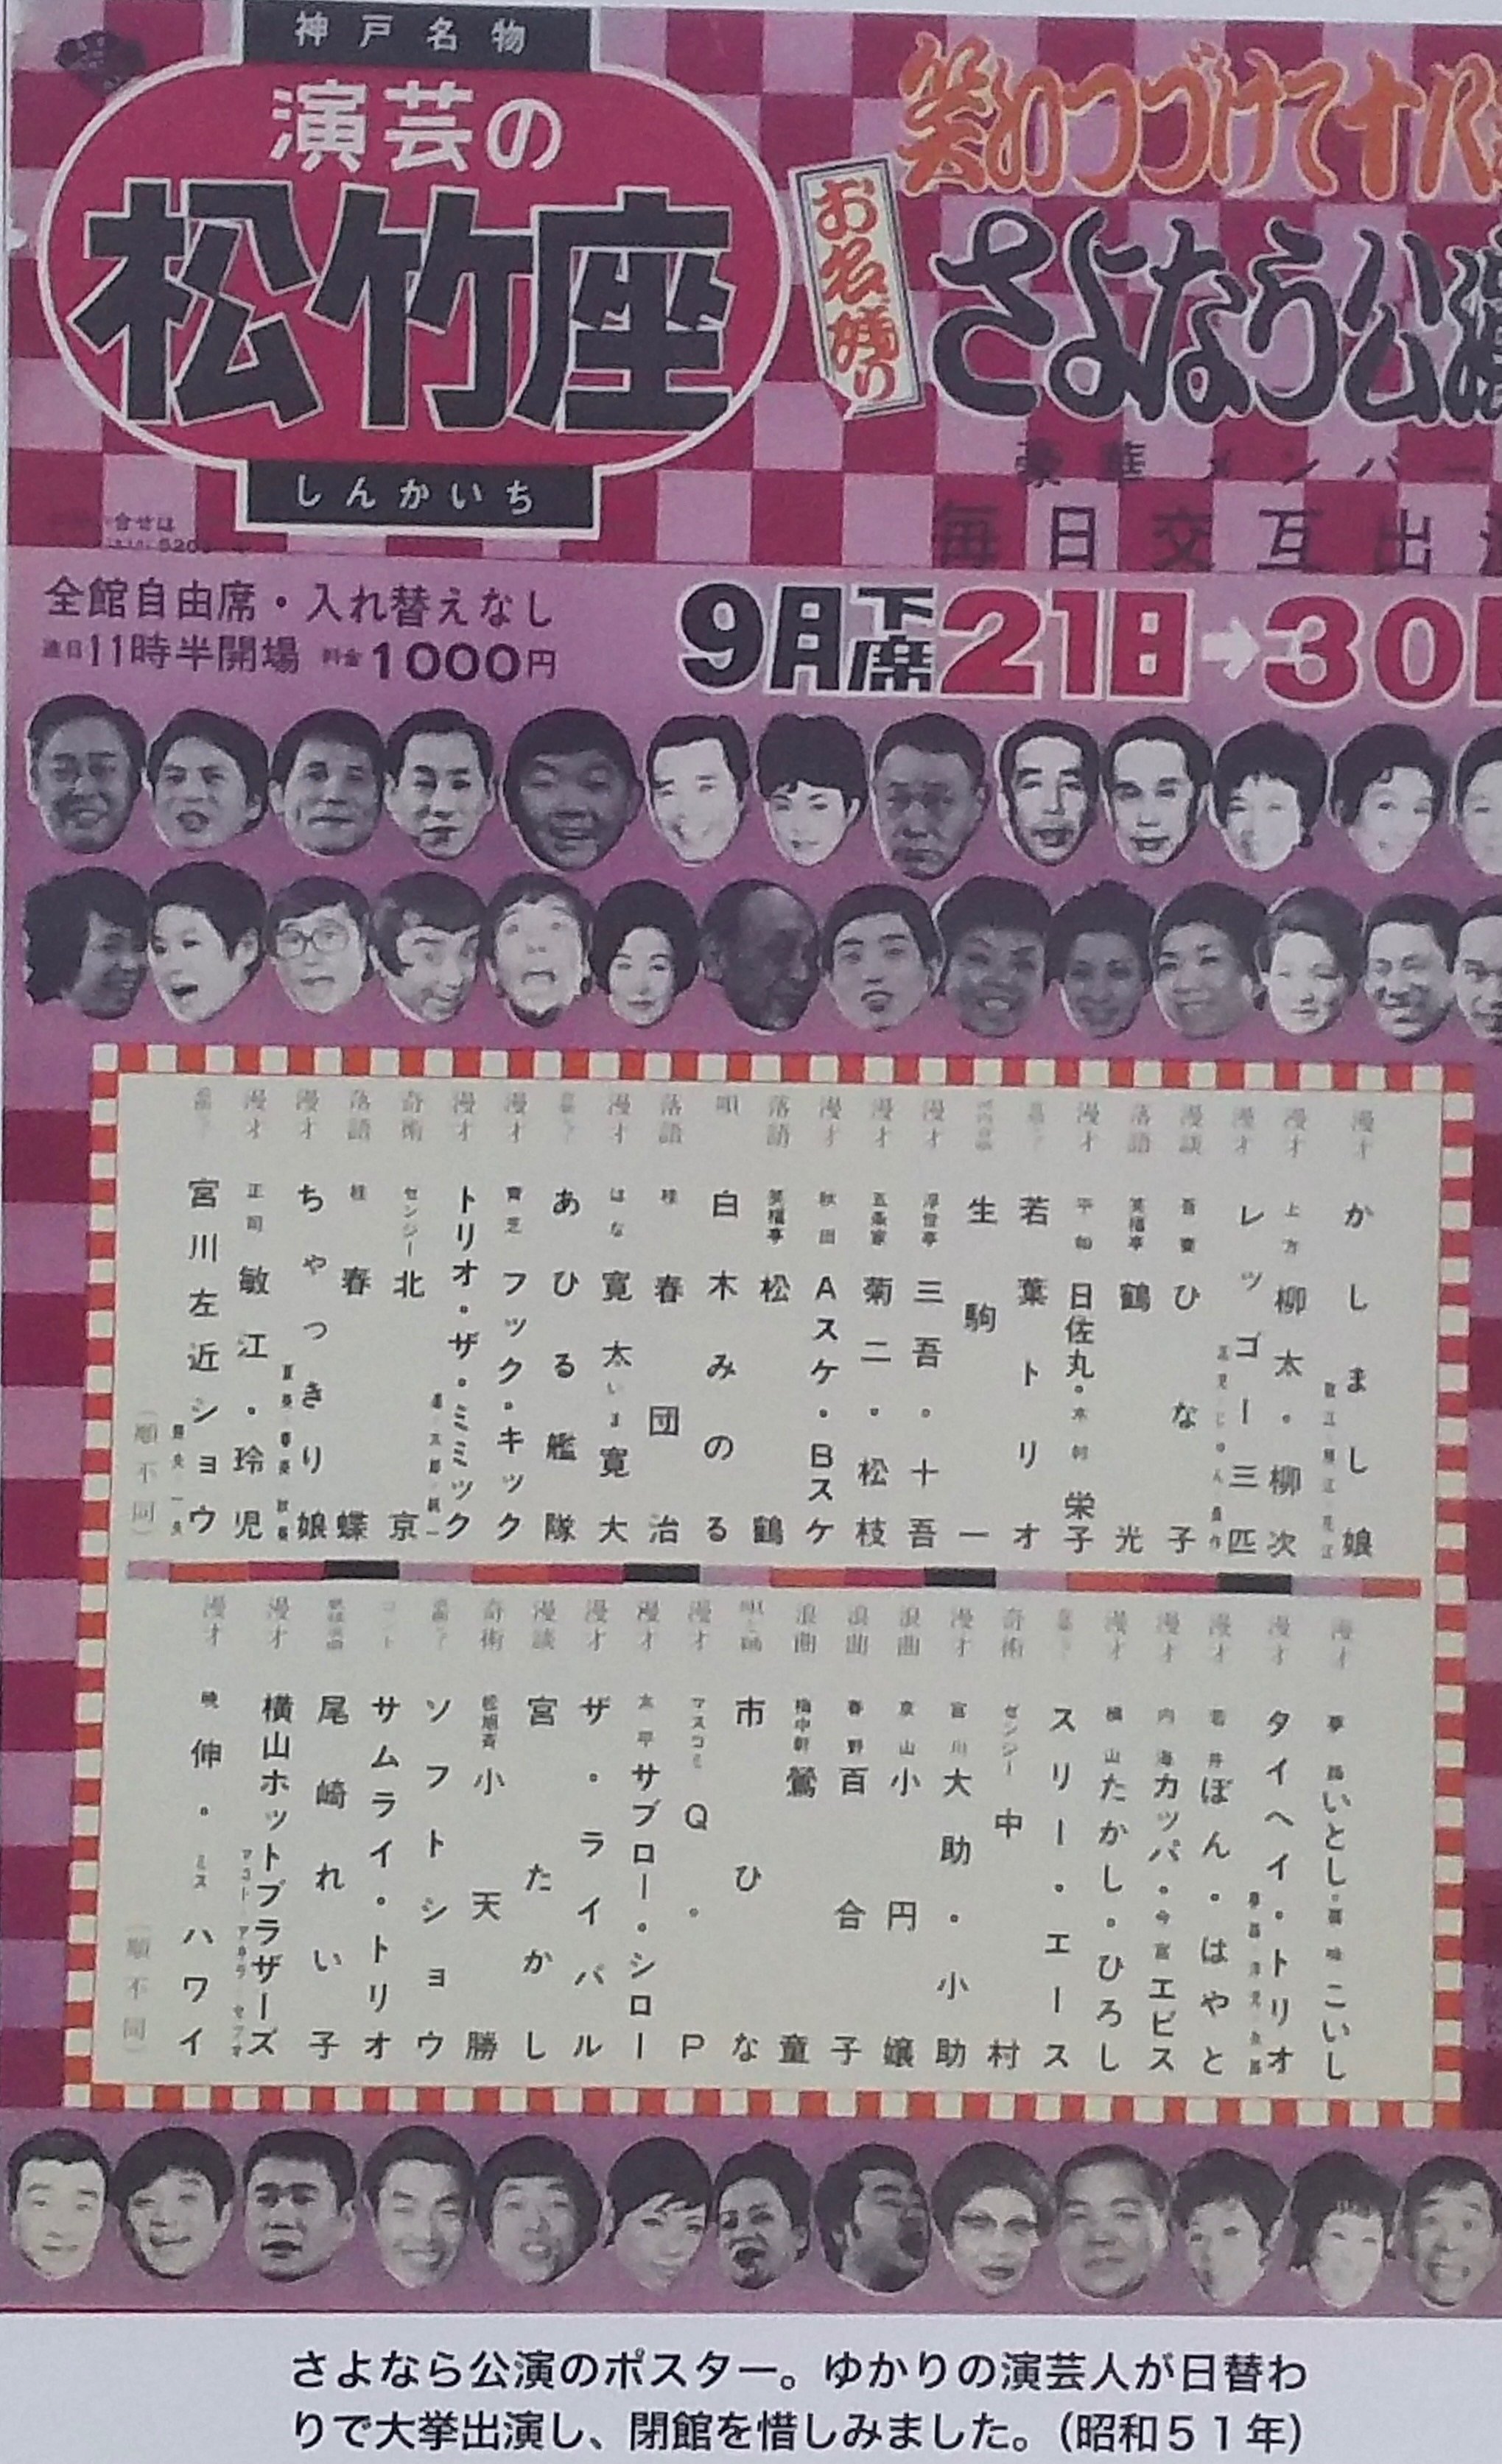 神戸名物
演芸の
松竹座
しんかいち
笑わつづけて十八
お名残り
さよなら公演
豪華メンバー
毎日交互出
合せは
全館自由席・入れ替えなし
連日11時半開場 料金1000円
9月下席21日→30日
漫才 かしまし娘
漫才 上方柳太・柳次
漫才 レツゴー三匹
漫談 吾妻ひな子
落語 笑福亭鶴光
漫才 平和日佐丸・木村栄子
若葉トリオ
生駒一
漫才 浮世亭三吾・十吾
漫才 五条家菊二・松枝
漫才 秋田Aスケ・Bスケ
落語 笑福亭松鶴
唄 白木みのる
落語 桂春団治
漫才 はな寛太・いま寛大
あひる艦隊
漫才 青芝フック・キック
漫才 トリオ・ザ・ミミック
奇術 ゼンジー北京
落語 桂春蝶
漫才 ちゃっきり娘
漫才 正司敏江・玲児
宮川左近ショウ
(順不同)
漫才 夢路いとし・喜味こいし
漫才 タイヘイ・トリオ
漫才 若井ぼん・はやと
漫才 内海カッパ・今宮エビス
漫才 横山たかし・ひろし
スリー・エース
奇術 ゼンジー中村
漫才 富川大助・小助
浪曲 京山小円嬢
浪曲 春野百合子
浪曲 梅中軒鶯童
市ひな
漫才 マスコミQ。P
漫才 太平サブロー・シロー
漫才 ザ・ライバル
漫談 宮たかし
奇術 松旭斉小天勝
ソフトショウ
コント サムライ・トリオ
尾崎れい子
漫才 横山ホットブラザーズ
マコト アキラ セツオ
漫才 暁伸・ミスハワイ
(順不同)
さよなら公演のポスター。ゆかりの演芸人が日替わ
りで大挙出演し、閉館を惜しみました。(昭和51年)